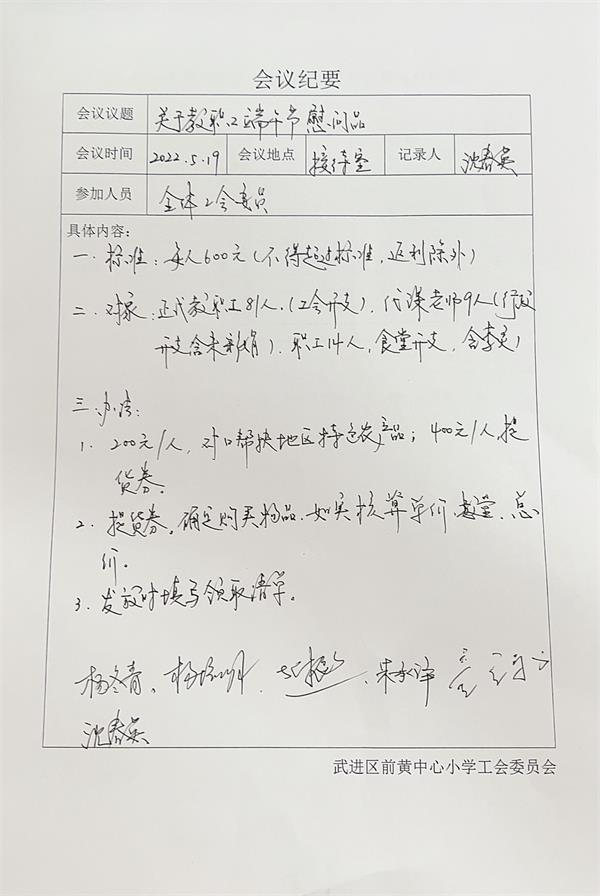 会议纪要
会议议题 关于教职工端午节慰问品
会议时间 2022.5.19 会议地点 接待室 记录人 沈春英
参加人员 全体工会委员
具体内容:
一.标准:每人600元(不得超过标准,返利除外)
二.对象:正式教职工81人.(工会开支).代课老师9人(行政
开支含朱新娟).职工14人,食堂开支,含李灵)
三.办法:
1. 200元/人,对口帮扶地区特色农产品;400元/人,提
货券.
2. 提货券,确定购买物品.如实核算单价.数量.总
价.
3. 发放时填写领取清单.
杨冬青. 朱水泽
沈春英
武进区前黄中心小学工会委员会